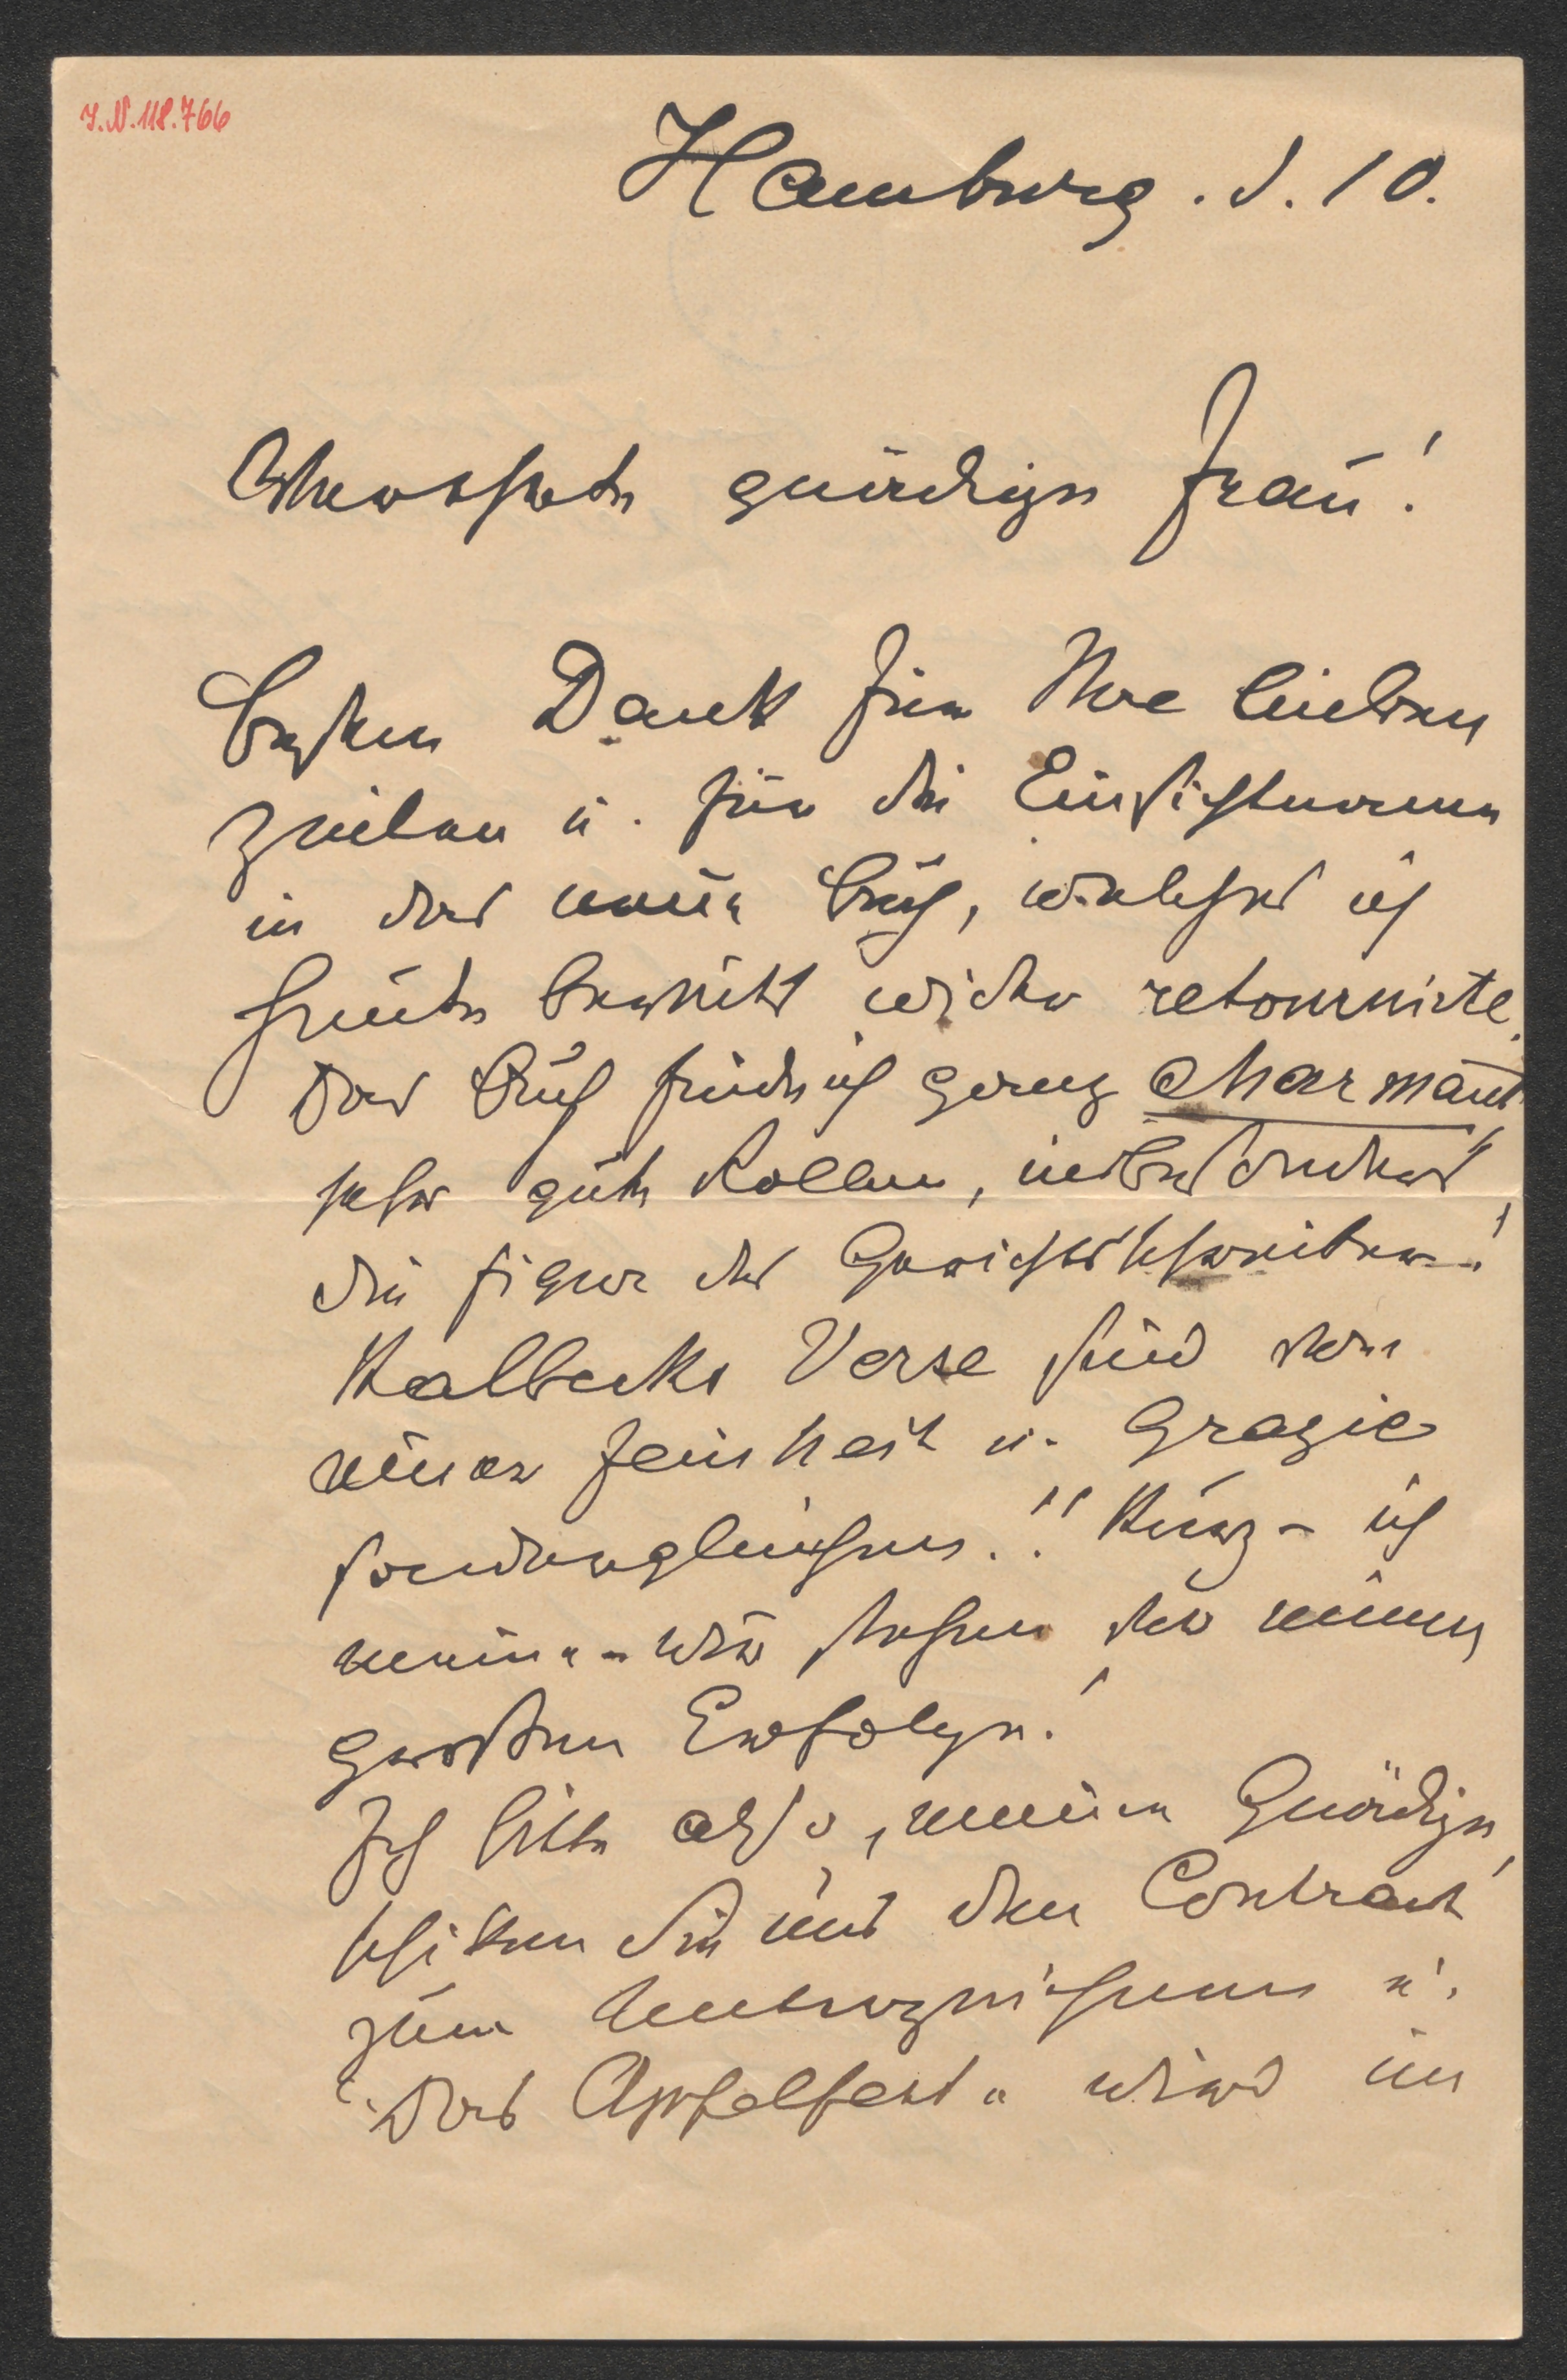 I.N.118.766
Hamburg. d. 10.
Verehrte gnädige Frau!
Besten Dank für Ihre lieben
Zeilen u. für die Einsichtnahme
in das neue Buch, welches ich
heute bereits wieder retournirte.
Das Buch finde ich ganz charmant
sehr gute Rollen, insbesondere
die Figur des Gerichtsschreibers!
Kalbecks Verse sind von
einer Feinheit u. Grazie
sondergleichen!! Kurz – ich
meine – wir stehen vor einem
großen Erfolge!
Ich bitte also, meine Gnädige,
schicken Sie uns den Contract
zum Unterzeichnen u.
"Das Apfelfest" wird im